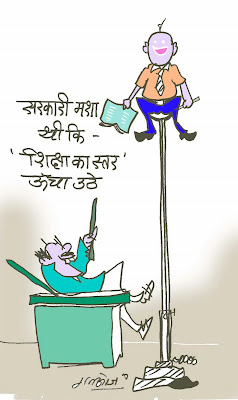 सरकारी मंशा
थी कि -
'शिक्षा का स्तर'
ऊँचा उठे